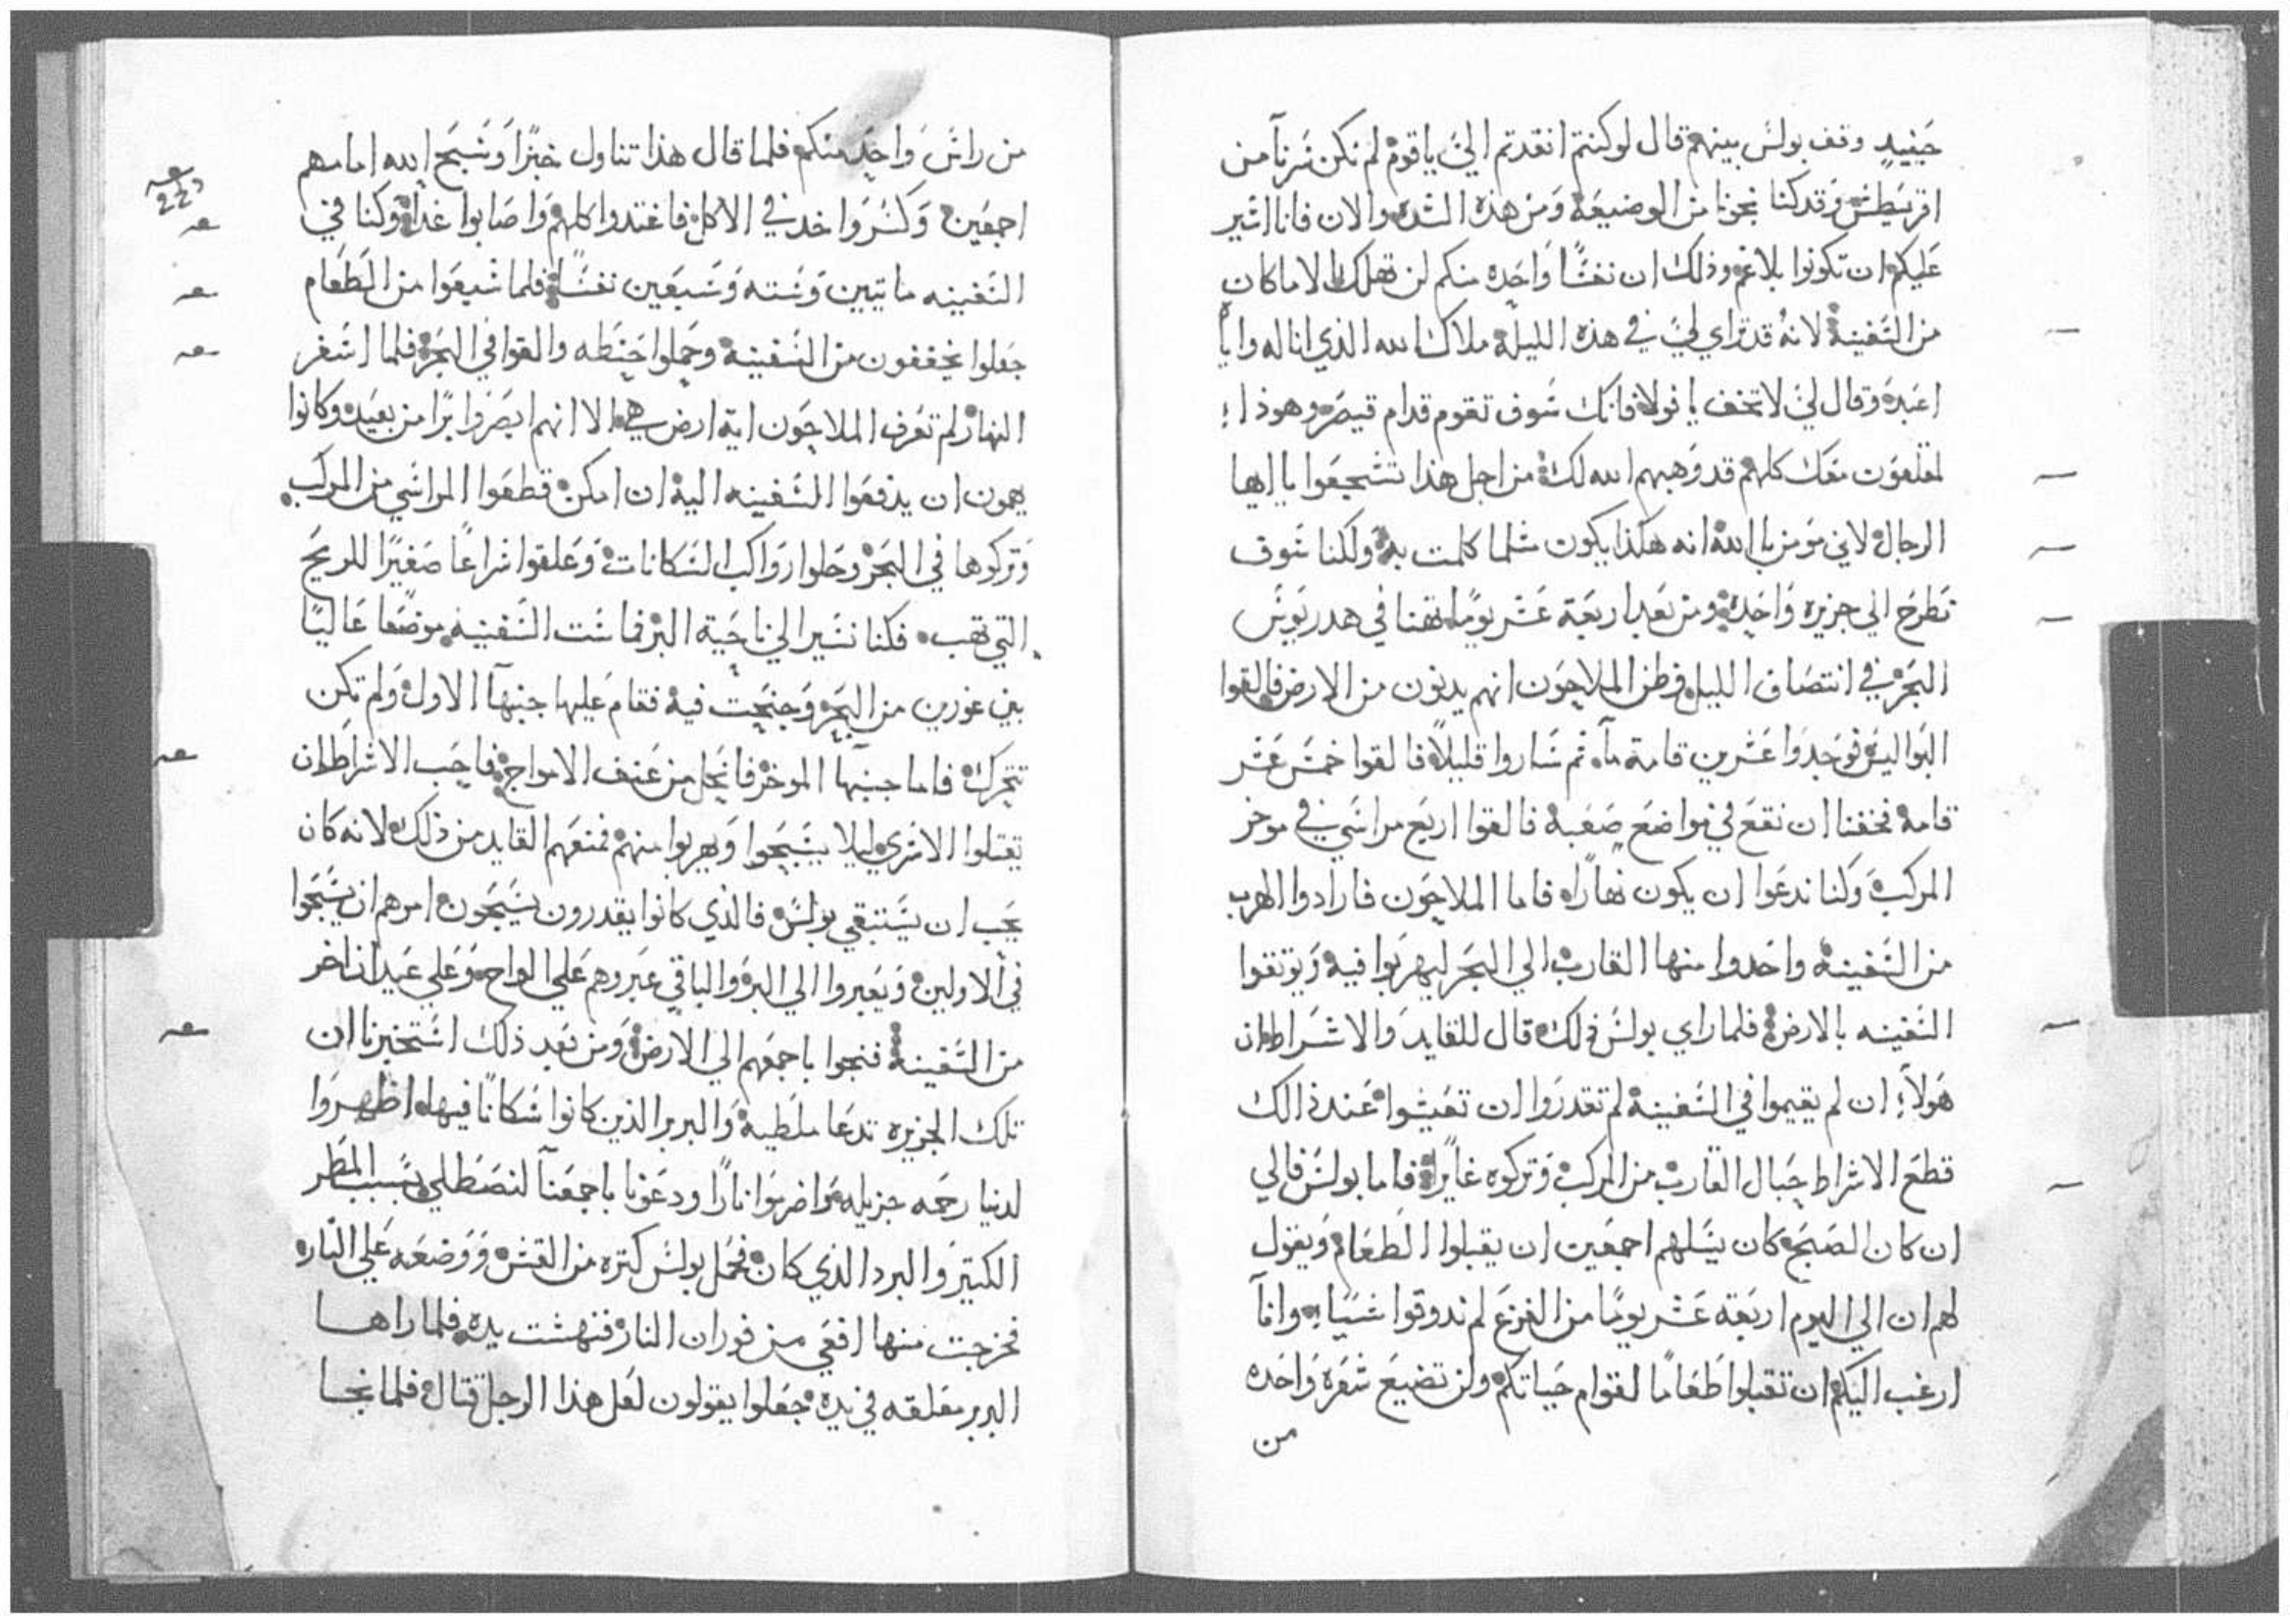 حينيد وقف بولس بينهم قال لو كنتم انقدتم الي ياقوم لم نكن سرنا من
اقريطش وقد كنا نجونا من الوضيعة ومن هذه الشده والان فانا اشير
عليكم ان تكونوا بلا غم وذلك ان نفسًا واحده منكم لن تهلك الا ما كان
من السفينة لانه قد تراي لي في هذه الليلة ملاك الله الذي انا له وايا
اعبد وقال لي لا تخف يا فولا فانك سوف تقوم قدام قيصر وهوذا
معك كلهم قد وهبهم الله لك من اجل هذا تشجيعوا يا ايها
الرجال لاني مومن بالله انه هكذا يكون مثلما كلمت به ولكنا سوف
نطرح الي جزيره واحدة ومن بعد اربعة عشر يومًا تهنا في هدريوس
البحر في انتصاف الليل فظن الملاحون انهم يدنون من الارض فالقوا
البواليس فوجدوا عشرين قامة ماء ثم ساروا قليلاً فالقوا خمس عشر
قامة فخفنا ان نقع في مواضع صعبة فالقوا اربع مراسي في موخر
المركب وكنا ندعوا ان يكون نهارًا فاما الملاحون فارادوا الهرب
من السفينة واحدوا منها القارب الي البحر ليهربوا فيه ويوتقوا
السفينه بالارض فلما راي بولس ذلك قال للقايد والاشراط ان
هولاء ان لم يقيموا في السفينة لم تقدروا ان تعيشوا عند ذالك
قطع الاشراط حبال القارب من المركب وتركوه غايرًا فاما بولس فالي
ان كان الصبح كان يسلهم اجمعين ان يقبلوا الطعام ويقول
لهم ان الي اليوم اربعة عشر يومًا من الفزع لم تدوقوا شيًا وانا
ارغب اليكم ان تقبلوا طعامًا لقوام حياتكم ولن تضيع شعرة واحده
من
من راس واحد منكم فلما قال هذا تناول خبزًا وسبح الله امامهم
اجمعين وكسر واخد في الاكل فاغتدوا كلهم واصابوا غداة وكنا في
السفينه مايتين وسته وسبعين نفسًا فلما شبعوا من الطعام
جعلوا يخففون من السفينة وحملوا حنطه والقوا في البحر فلما اسفر
النهار لم تعرف الملاحون اية ارض هي الا انهم ابصروا برًا من بعيد وكانوا
يهمون ان يدفعوا السفينه اليه ان امكن قطعوا المراسي من المركب
وتركوها في البحر وحلوا رواكب السكانات وعلقوا شراعًا صغيرًا للريح
التي تهب فكنا نسير الي ناحية البر فماست السفينه موضعًا عاليًا
بين غورين من البحر وجنحت فيه فقام عليها جنبها الاول ولم تكن
تتحرك فاما جنبها الموخر فانحل من عنف الامواج فاحب الاشراط ان
يقتلوا الاسري ليلا يسبحوا ويهربوا منهم فمنعهم القايد من ذلك لانه كان
يحب ان يستبقي بولس فالذي كانوا يقدرون يسبحون امرهم ان يسبحوا
في الاولين ويعبروا الي البر والباقي عبروهم علي الواح وعلي عيدان اخر
من السفينة فنجوا باجمعهم الي الارض ومن بعد ذلك استخبرنا ان
تلك الجزيره تدعا ملطية والبربر الذين كانوا سكانًا فيها اظهروا
لدنيا رحمه جزيله واضرموا نارًا ودعونا باجمعنا لنصطلي بسبب المطر
الكتير والبرد الذي كان فحمل بولس كتره من القش ووضعه علي النار
فخرجت منها افعي من فوران النار فنهشت يده فلما راها
البربر معلقه في يده جعلوا يقولون لعل هذا الرجل قتال فلما نجا